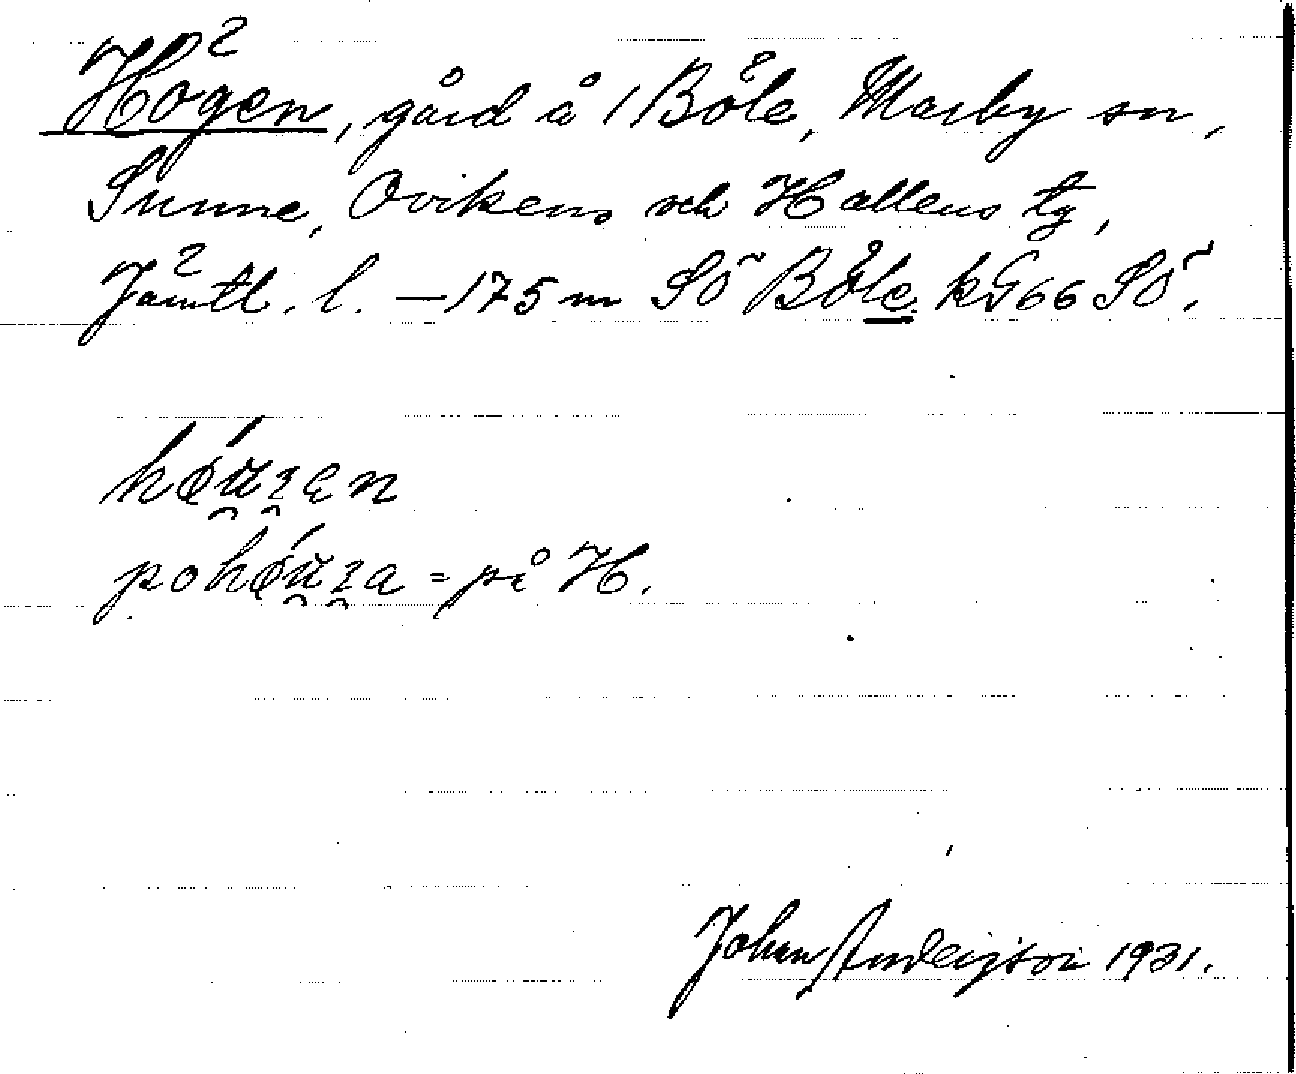 Högen, gård å 1 Böle, Marby sn,
Sunne, Ovikens och Hallens tg,
Jämtl. l. — 175 m SÖ Böle k. G 66 SÖ.
på H.
Johan Anderson 1931.